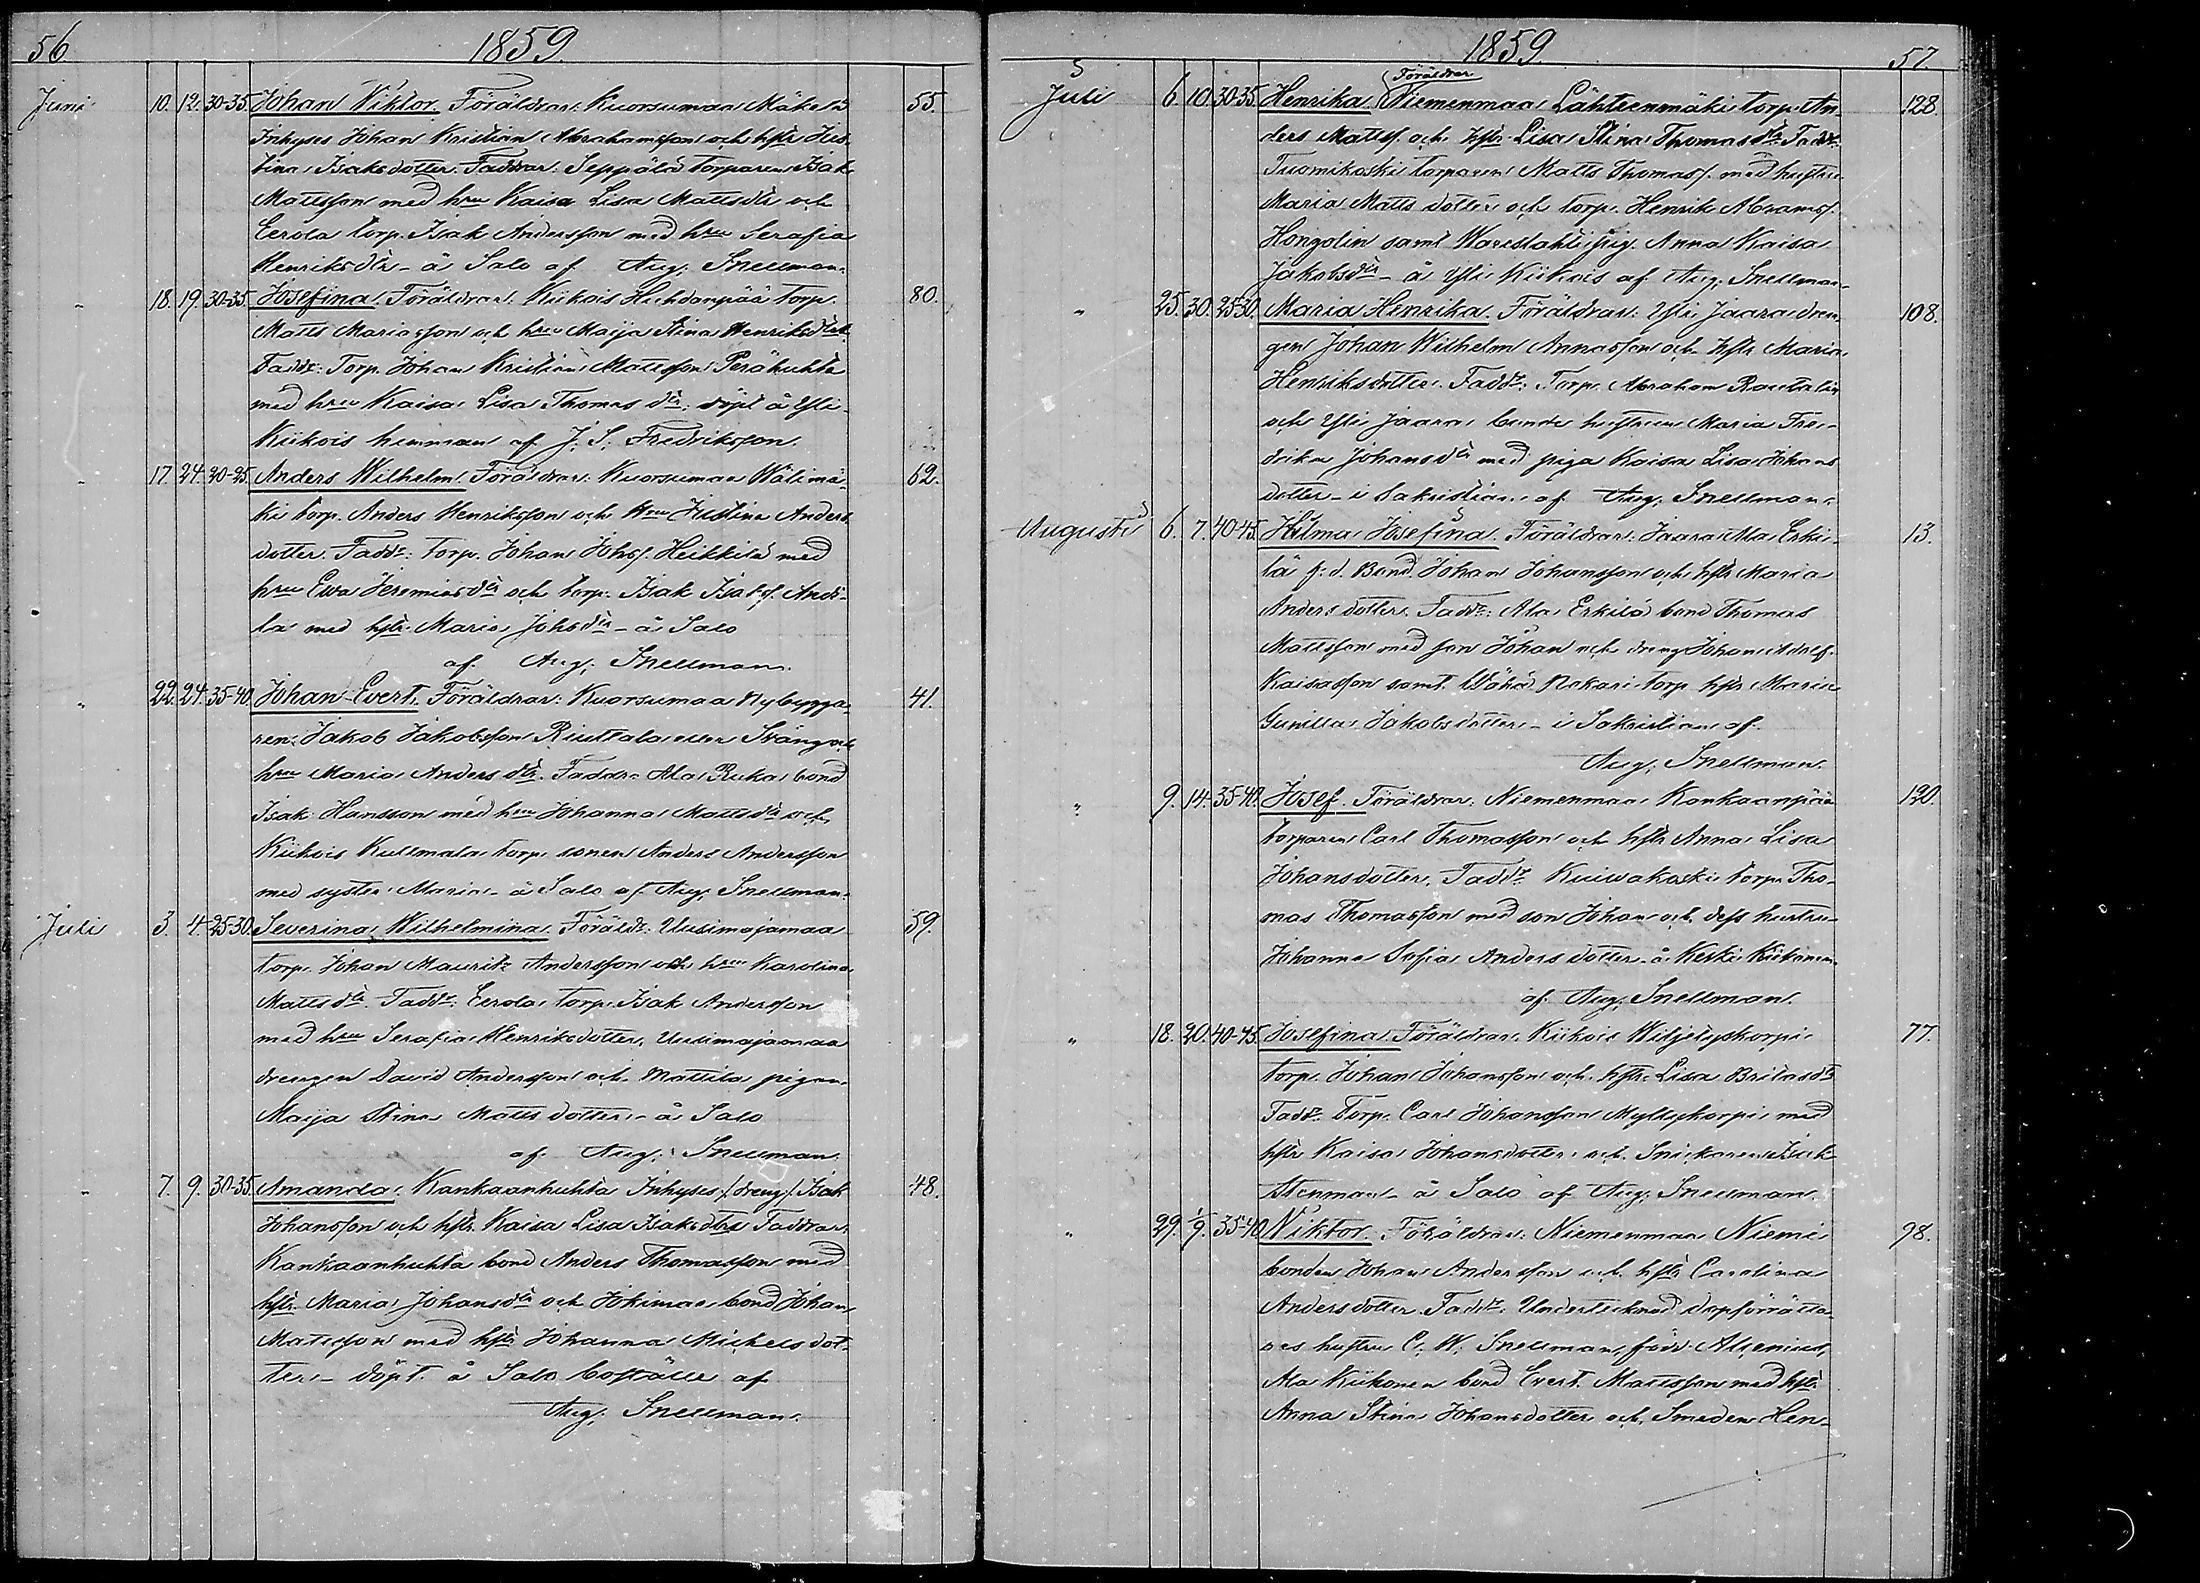 56
1859.
Juni 10. 12. 30-35. Johan Viktor. Föräldrar: Kuorsumaa Mäkelä 55.
Inhyses Johan Kristian Abrahamsson och hstr Jus-
tina Isaksdotter. Faddrar: Seppälä torparen Isak
Mattsson med hru Kaisa Lisa Mattsdtr och
Eerola torp. Isak Andersson med hru Serafia
Henriksdtr - å Salo af Aug. Snellman.
" 18. 19. 30-35. Josefina. Föräldrar: Kiikois torp. 80.
Matts Mariasson och hru Maija Stina Henriksdtr.
Faddr: Torp. Johan Kristian Mattsson Peräkuhta
med hru Kaisa Lisa Thomas dtr. döpt å Yli-
Kiikois hemman af J. S. Fredriksson.
" 17. 24. 20-25. Anders Wilhelm. Föräldrar: Kuorsumaa Wälimä- 62.
ki torp. Anders Henriksson och hru Justina Anders
dotter. Faddr: torp. Johan Johss. Heikkilä med
hru Ewa Jeremiasdtr och torp. Isak Isakss. Anti-
la med hstr Maria Johsdtr - å Salo
af Aug. Snellman.
" 22. 24. 35-40. Johan Evert. Föräldrar: Kuorsumaa Nybygga- 41.
ren Jakob Jakobsson Riuttala eller Sväng och
hru Maria Anders dtr. Faddr. Ala Ruka bond
Isak Hansson med hru Johanna Mattsdtr och
Kiikois Kullmala torp. sonen Anders Andersson
med syster Maria - å Salo af Aug. Snellman.
Juli 3. 4. 25-30. Severina Wilhelmina. Föräldr: Uusimajamaa 59.
torp. Johan Mauritz Andersson och hru Karolina
Mattsdtr. Faddr: Eerola torp. Isak Andersson
med hru Serafia Henriksdotter, Uusimajamaa
drengen David Andersson och Mattila pigan
Maija Stina Mattsdotter - å Salo
af Aug. Snellman.
" 7. 9. 30-35. Amanda. Kankaanhuhta Inhyses /:dreng:/ Isak 48.
Johansson och hstr. Kaisa Lisa Isaksdtr Faddrar:
Kankaanhuhta bond Anders Thomasson med
hstr. Maria Johansdtr och Jokimaa bond Johan
Mattsson med hstr Johanna Mickelsdot-
ter - döpt å Salo boställe af
Aug. Snellman.
1859.
57.
Föräldrar
Juli 6. 10. 30-35. Henrika. Niemenmaa Lähteenmäki torp. An- 128.
ders Mattss. och hstr. Lisa Stina Thomasdtr. Faddr.
Tuomikoski torparen Matts Thomass. med hustru
Maria Matts dotter och torp. Henrik Abramss.
Hongolin samt pig. Anna Kaisa
Jakobsdtr - å Yli Kiikois af Aug. Snellman
" 25. 30. 25-30. Maria Henrika. Föräldrar: Yli Jaara dren- 108.
gen Johan Wilhelm Annasson och hstr Maria
Henriksdotter. Faddr: Torp. Abraham Rautalin
och Yli Jaara bonde hustrun Maria Fre-
drika Johansdtr med piga Kaisa Lisa Johans
dotter - i Sakristian af Aug. Snellman.
Augusti 6. 7. 40-45. Hilma Josefina. Föräldrar: Jaara Ala Erki- 13.
lä f. d. Bond. Johan Johansson och hstr Maria
Anders dotter. Faddr: Ala Erkilä bond Thomas
Mattsson med son Johan och dreng Johan Adolf
Kaisasson samt Wähä Nakari torp. hstr Maria
Gunilla Jakobsdotter - i Sakristian af
Aug. Snellman.
" 9. 14. 35-40. Josef. Föräldrar: Niemenmaa Kankaanpää 120.
torparen Carl Thomasson och hstr Anna Lisa
Johansdotter. Faddr: Kuiwakoski torp. Tho-
mas Thomasson med son Johan och dess hustru
Johanna Sofia Anders dotter å Keski Kiikonen
af Aug. Snellman.
" 18. 20. 40-45. Josefina. Föräldrar: Kiikois 77.
torp. Johan Johansson och hstr. Lisa Britasdtr
Faddr. Torp. Carl Johansson Myllykorpi med
hstr Kaisa Johansdotter och Snickaren Isak
Stenman - å Salo af Aug. Snellman.
" 29. 1/9. 35-40. Viktor. Föräldrar: Niemenmaa Niemi 98.
bonden Johan Andersson och hstr Carolina
Andersdotter. Faddr: Undertecknad dopförrätta-
res hustru C. W. Snellman, född Alcenius,
Ala Kiikonen bond Evert Mattsson med hstr
Anna Stina Johansdotter och Smeden Hen-